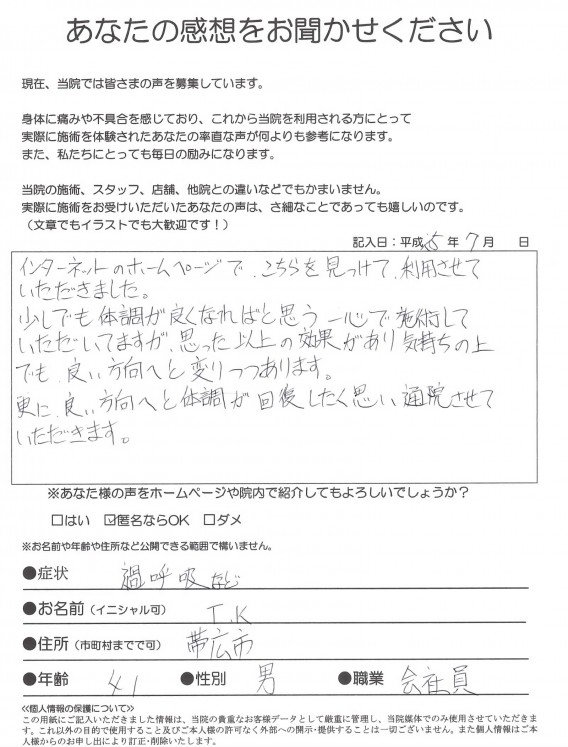 あなたの感想をお聞かせください
現在、当院では皆さまの声を募集しています。
身体に痛みや不具合を感じており、これから当院を利用される方にとって
実際に施術を体験されたあなたの率直な声が何よりも参考になります。
また、私たちにとっても毎日の励みになります。
当院の施術、スタッフ、店舗、他院との違いなどでもかまいません。
実際に施術をお受けいただいたあなたの声は、ささいなことであっても嬉しいのです。
（文章でもイラストでも大歓迎です！）
記入日：平成 年 7月 日
インターネットのホームページで、こちらを見つけて、利用させて
いただきました。
少しでも体調が良くなればと思う一心で施術して
いただいてますが、思った以上の効果があり気持ちの上
でも、良い方向へと変りつつあります。
更に、良い方向へと体調が回復したく思い通院させて
いただきます。
※あなた様の声をホームページや院内で紹介してもよろしいでしょうか？
□はい ☑匿名ならOK □ダメ
※お名前や年齢や住所など公開できる範囲で構いません。
●症状 過呼吸など
●お名前（イニシャル可） T.K
●住所（市町村までで可） 帯広市
●年齢 41 ●性別 男 ●職業 会社員
≪個人情報の保護について≫
この用紙にご記入いただきました情報は、当院の貴重なお客様データとして厳重に管理し、当院媒体でのみ使用させていただきま
す。これ以外の目的で使用すること及びご本人様の許可なく外部への開示・提供することは一切ございません。また個人情報はご本
人様からのお申し出により訂正・削除いたします。